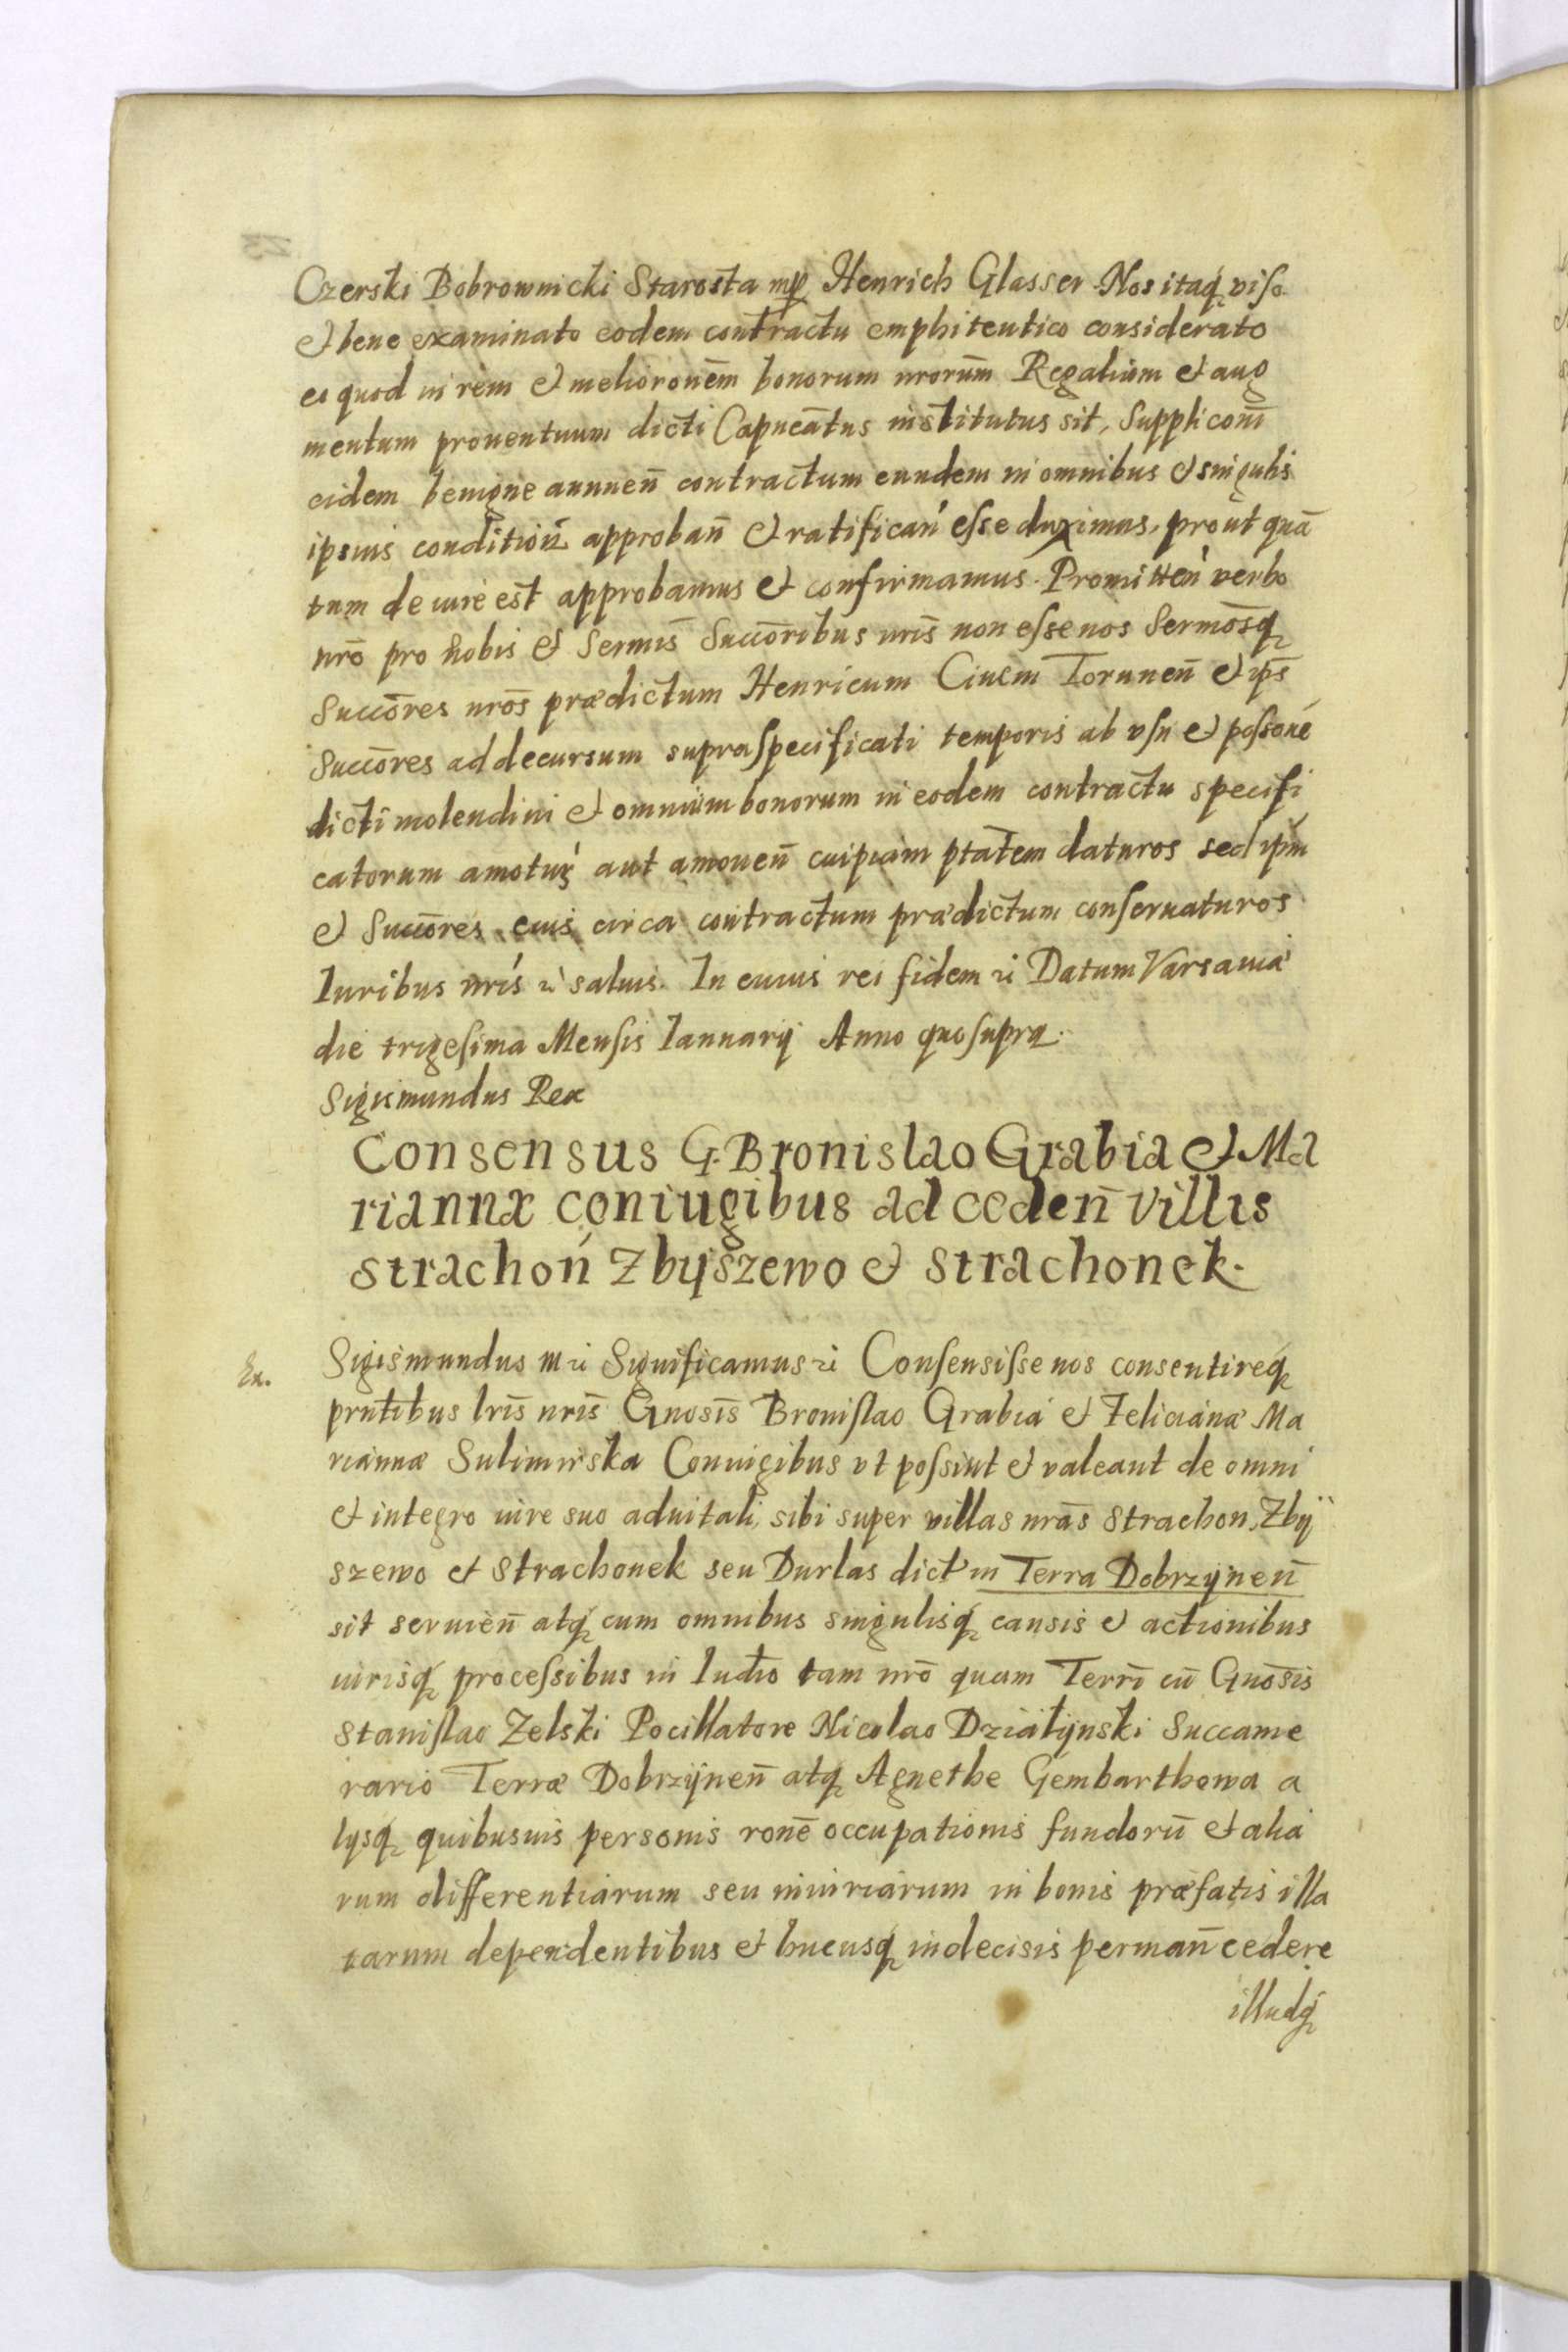 Czerski Bobrownicki Starosta mp Henrich Glasser. Nos itaq viso
et bene examinato eodem contractu emphiteutico considerato
eo quod in rem et melioronem̄ bonorum nrorum̄ Regalium et aug
mentum prouentuum dicti Capneātus institutus sit, Suppliconi
eidem benigne annuen̄ contractum eundem in omnibus et singulis
ipsius condition̄ approban̄ et ratifican̄ esse duximus, prout quā
tum de iure est approbamus et confirmamus. Promitten̄ verbo
nrō pro nobis et Sermis̄ Succōribus nris̄ non esse nos Sermosq̄
Succōres nros̄ prædictum Henricum Ciuem Torunen̄ et ips̄
Succōres ad decursum supraspecificati temporis ab vsu et possone
dicti molendini et omnium bonorum in eodem contractu specifi
catorum amotur̄ aut amouen̄ cuipiam ptātem daturos sed ipm̄
et Succōres eius circa contractum prædictum conseruaturos
Iuribus nris̄ ꝛ saluis. In cuius rei fidem ꝛ Datum Varsauiæ
die trigesima Mensis Ianuarij Anno quo supra.
Sigismundus Rex
Consensus G. Bronislao Grabia et Ma
riannæ coniugibus ad ceden̄ villis
Strachoń Zbyszewo et Strachonek.
Ex.
Sigismundus III ꝛ Significamus ꝛ Consensisse nos consentireq
prntibus̄ lris̄ nris̄ Gnosis̄ Bronislao Grabia et Feliciana Ma
rianna Sulimirska Coniugibus vt possint et valeant de omni
et integro iure suo aduitali sibi super villas nrās Strachon, Zbÿ
szewo et Strachonek seu Durlas dict in Terra Dobrzÿnen̄
sit seruien̄ atq cum omnibus singulisq causis et actionibus
iurisq processibus in Iudio tam nrō quam Terrī cū Gnosis̄
Stanislao Zelski Pocillatore Nicolao Działÿnski Succame
rario Terræ Dobrzÿnen̄ atq Agnethe Gembarthowa a
lysq quibusuis personis ronē occupationis fundorū et alia
rum differentiarum seu iniuriarum in bonis præfatis illa
tarum dependentibus et hucusq indecisis perman̄ cedere
illudq